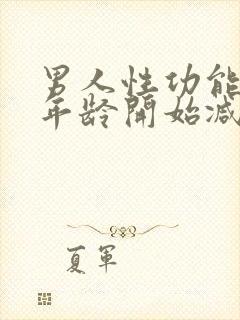 男人性功能
年龄開始减
夏軍